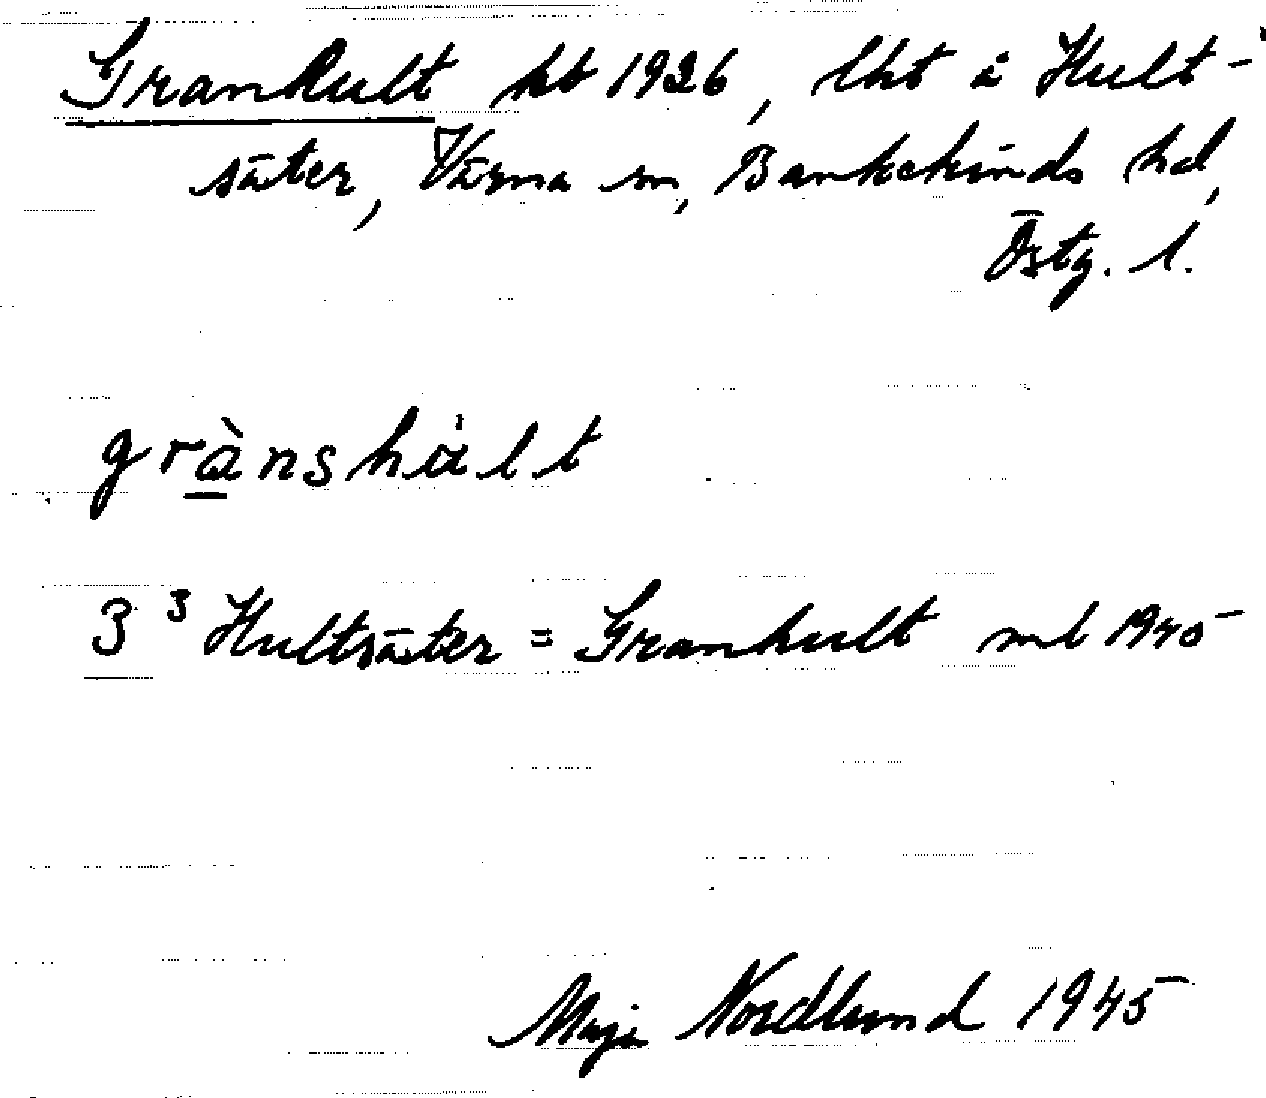 Granhult kb 1926, lht i Hult-
säter, Värna sn, Bankekinds hd,
Östg. l.
grànshált
3 3 Hultsäter = Granhult ml 1945
Maja Nordlund 1945